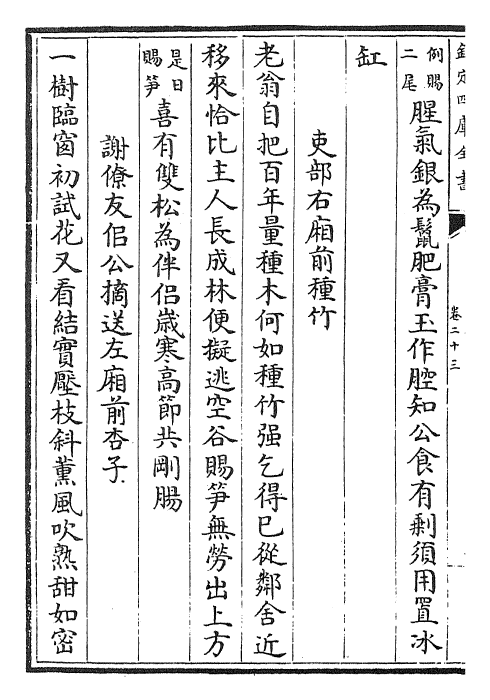 欽定四庫全書
卷二十三
例賜
二尾
腥氣銀為鬣肥膏玉作腔知公食有剰須用置冰
缸
吏部右廂前種竹
老翁自把百年量種木何如種竹强乞得已從鄰舍近
移來恰比主人長成林便擬逃空谷賜笋無勞出上方
是日
賜笋
喜有雙松為伴侣嵗寒高節共剛腸
謝僚友侣公摘送左廂前杏子
一樹臨窗初試花又看結實壓枝斜薰風吹熟甜如密